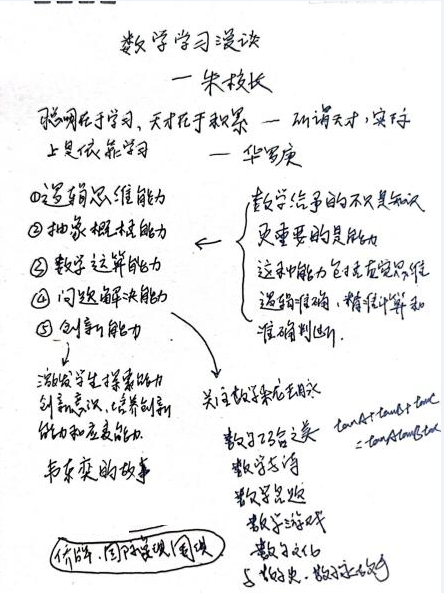 数学学习漫谈
—朱校长
聪明在于学习、天才在于积累 — 所谓天才,实际
上是依靠学习 — 华罗庚
①逻辑思维能力
②抽象概括能力
③数学运算能力
④问题解决能力
⑤创新能力
激发学生探索能力
创新意识、培养创新
能力和应变能力.
韦东奕的故事
数学给予的不只是知识
更重要的是能力
这种能力包括直觉思维
逻辑准确,精准计算和
准确判断.
关注数学来龙去脉
数学之美
tanA+tanB+tanC
=tanAtanBtanC
数学与诗
数学
数学游戏
数学文化
数学史、数学家故事
侨牌、国际象棋、围棋